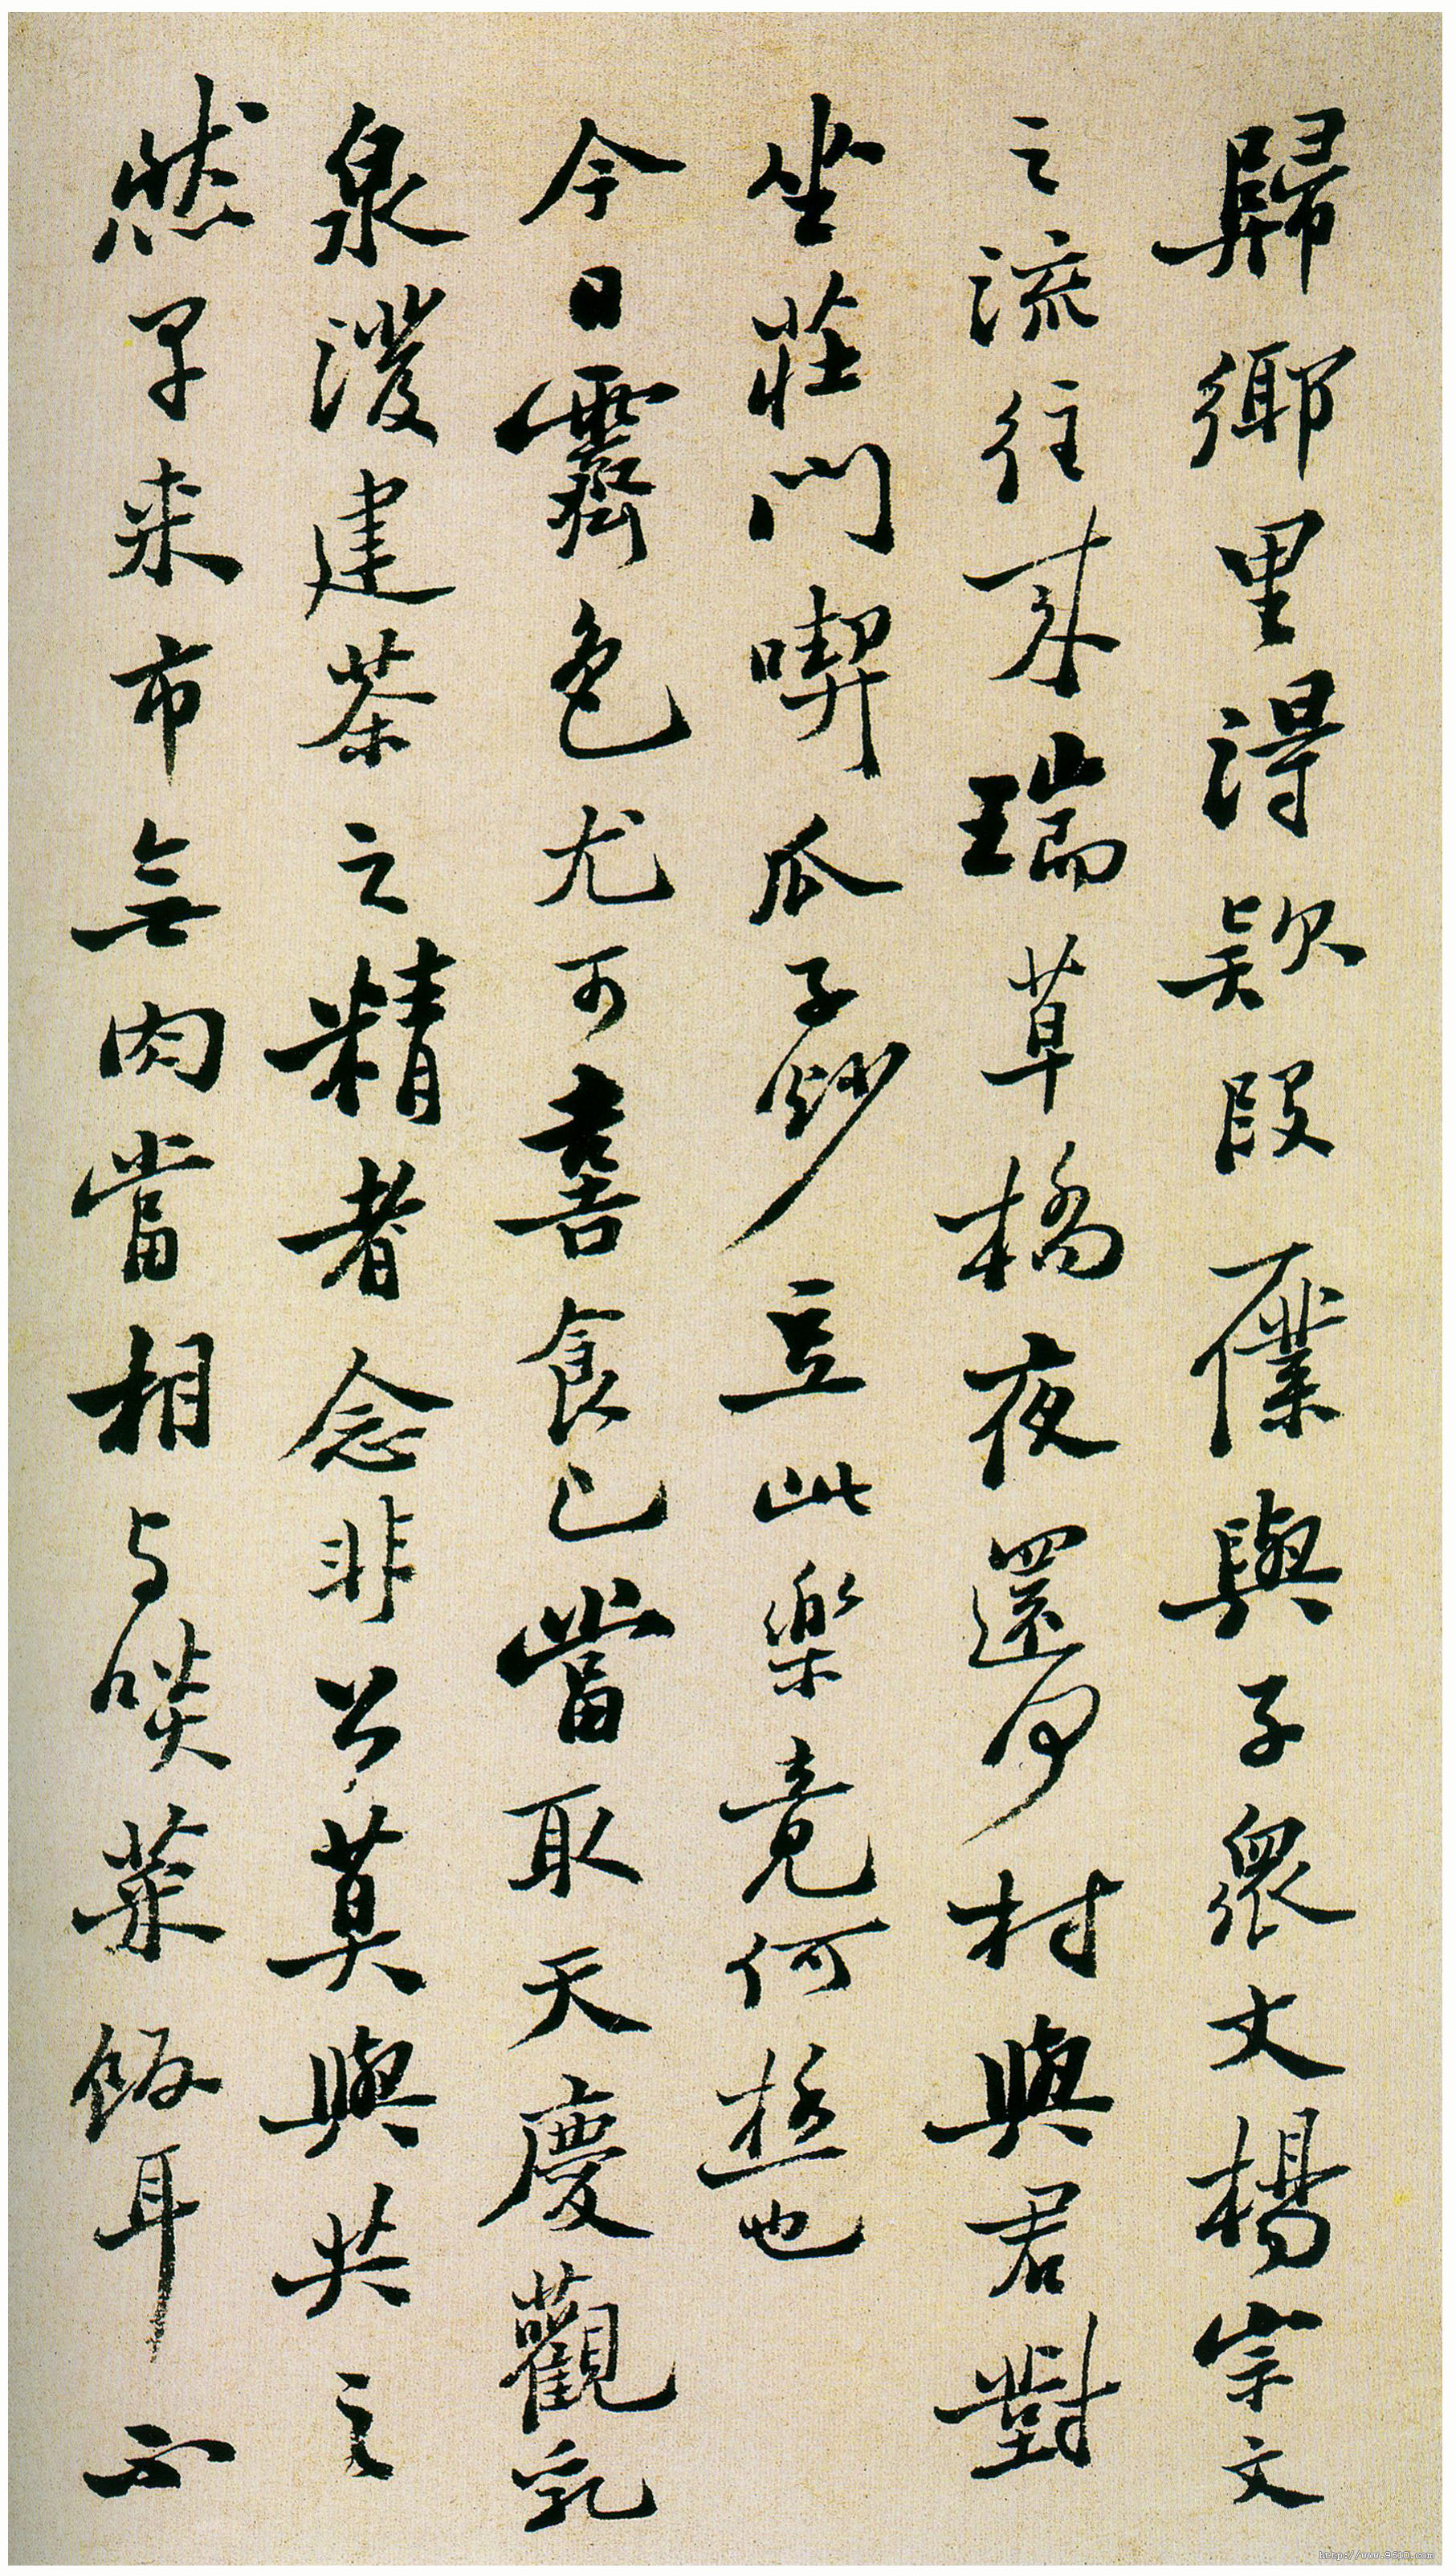 歸鄉里得欵段一僕與子衆丈楊宗文
之流往來瑞草橋夜還何村與君對
坐莊門喫瓜子炒豆此樂竟何極也
今日霽色尤可喜食已當取天慶觀乳
泉潑建茶之精者念非公莫與共之
然早来市無肉當相与啖菜飯耳不
http://www.9610.com